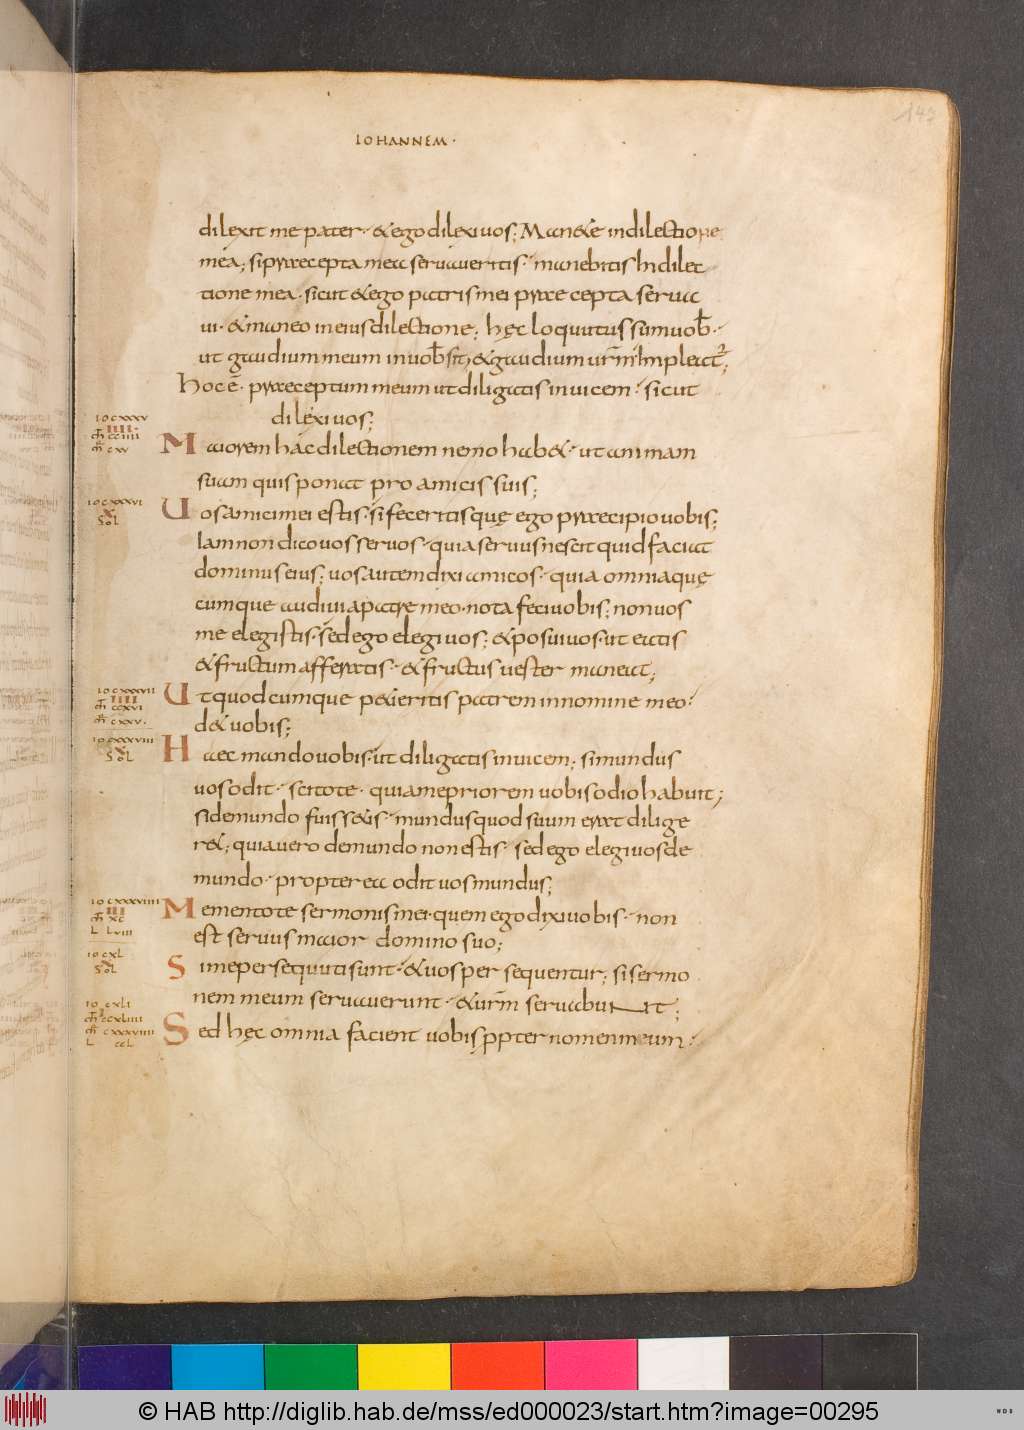 147
IOHANNEM·
dilexit me pater· & ego dilexi uos; Man&e in dilectione
mea; si praecepta mea seruaueritis· manebitis In dilec
tione mea· sicut & ego patris mei praecepta serua
ui· & maneo in eius dilectione; hęc loquutus sum uob̄·
ut gaudium meum in uob̄ sit, & gaudium ur̄m Impleat²;
hoc ē· praeceptum meum ut diligatis inuicem· sicut
dilexi uos;
IO CXXXV
IIII·
m̄ CCIIII
m̄ CXV
Maiorem hac dilectionem nemo hab&· ut animam
suam quis ponat pro amicis suis;
IO CXXXVI
X
SOL
Uos amici mei estis· si feceritis quę ego praecipio uobis;
Iam non dico uos seruos· quia seruus nescit quid faciat
dominus eius; uos autem dixi amicos· quia omnia quę
cumque audiui a patre meo· nota feci uobis; non uos
me elegistis· sed ego elegi uos; & posui uos· ut eatis
& fructum afferatis· & fructus uester maneat;
IO CXXXVII
IIII
m̄ CCXVI
m̄ CXXV·
Ut quodcumque pe&ieritis patrem in nomine meo·
d& uobis;
IO CXXXVIII
X
SOL
Haec mando uobis· ut diligatis inuicem; si mundus
uos odit· scitote· quia me priorem uobis odio habuit;
si de mundo fuiss&is· mundus quod suum erat dilige
r&; quia uero de mundo non estis· sed ego elegi uos de
mundo· propterea odit uos mundus;
IO CXXXVIIII
III
m̄ XC
L LVIII
Mementote sermonis mei· quem ego dixi uobis· non
est seruus maior domino suo;
IO CXL
X
SOL
Si me persequuti sunt· & uos persequentur; si sermo
nem meum seruauerunt· & ur̄m seruabunt;
IO CXLI
I
m̄ CCXLIIII
m̄ CXXXVIIII
L CCL
Sed hęc omnia facient uobis ꝓpter nomen meum·
© HAB http://diglib.hab.de/mss/ed000023/start.htm?image=00295